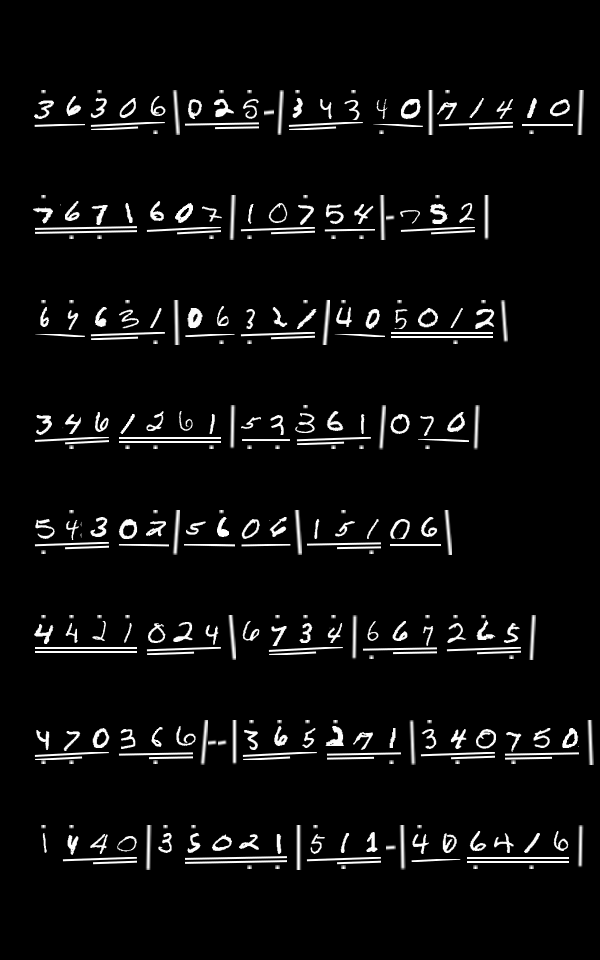 36306|025-|34340|71410|
7671607|10754|-752|
64631|06321|405012|
3461261|52361|070|
54302|5606|15106|
4421024|6734|667265|
470366|--|365271|340750|
1440|35021|511-|406416|